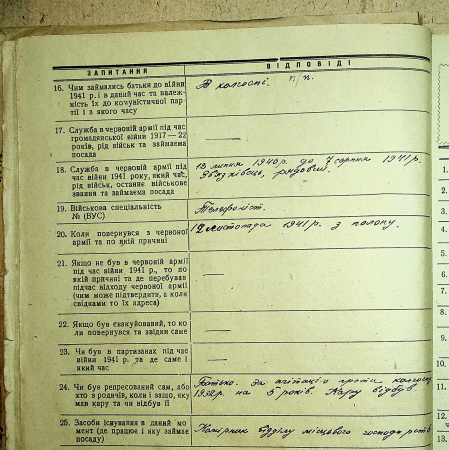 ЗАПИТАННЯ
ВІДПОВІДІ
16. Чим займались батьки до війни
1941 р. і в даний час та належ-
ність їх до комуністичної пар-
тії і з якого часу
В колгоспі. п/п.
17. Служба в червоній армії під час
громадянської війни 1917 — 22
років, рід військ та займаєма
посада
—
18. Служба в червоній армії під
час війни 1941 року, який час,
рід військ, останнє військове
звання та займаєма посада
13 липня 1940 р. до 7 серпня 1941 р.
рядовий.
19. Військова спеціальність
№ (ВУС)
Телефоніст.
20. Коли повернувся з червоної
армії та по якій причині
12 листопада 1941 р. з полону.
21. Якщо не був в червоній армії
під час війни 1941 р., то по
якій причині та де перебував
підчас відходу червоної армії
(чим може підтвердити, а коли
свідками то їх адреса)
—
22. Якщо був евакуйований, то ко
ли повернувся та звідки саме
—
23. Чи був в партизанах під час
війни 1941 р. та де саме і
який час
—
24. Чи був репресований сам, або
хто з родичів, коли і защо, яку
мав кару та чи відбув її
Батько. За агітацію проти колгоспу
1932 р. на 5 років. Кару відбув.
25. Засоби існування в даний мо
мент (де працює і яку займає
посаду)
відділу місцевого господарства
1.
2.
3.
4.
5.
6.
7.
8.
9.
10.
11.
12.
13.